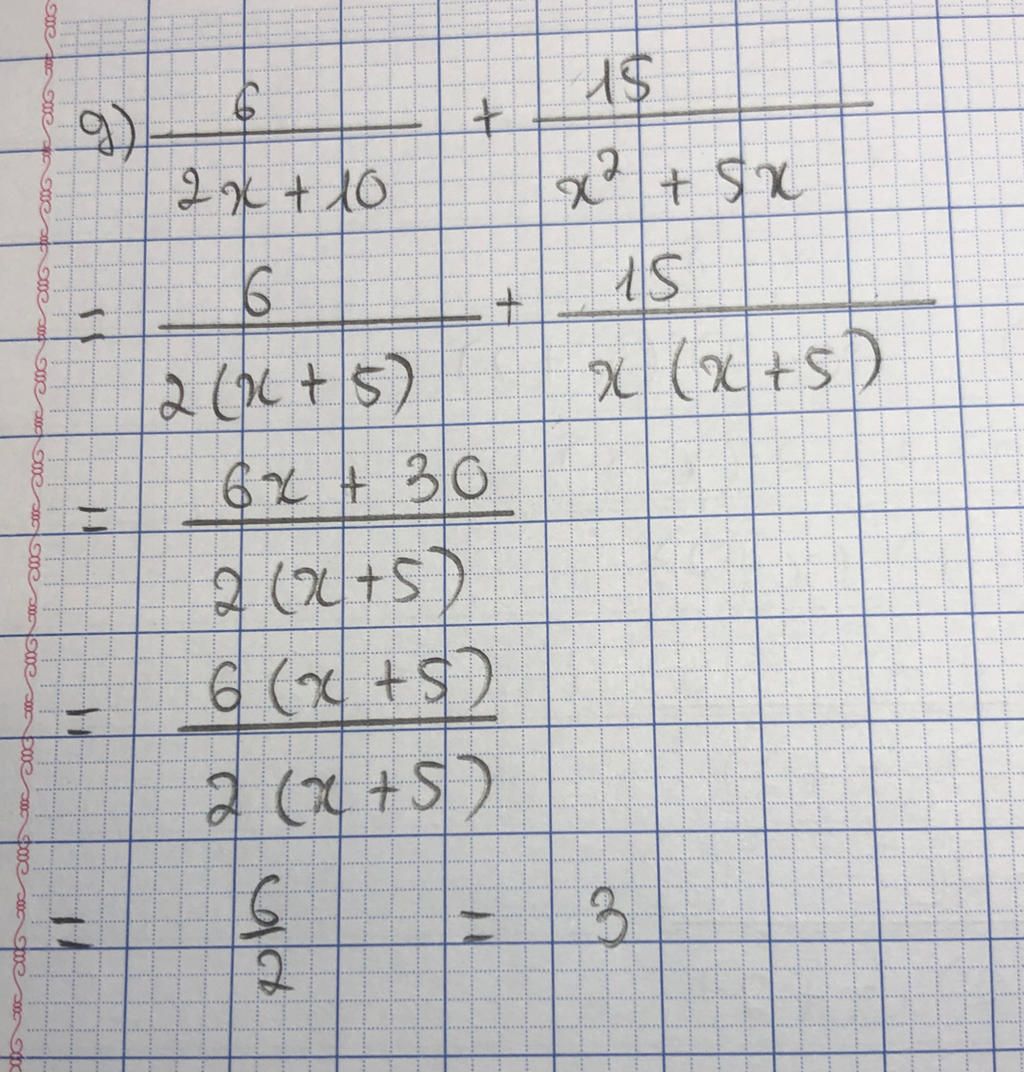 g) 6/(2x + 10) + 15/(x² + 5x)
= 6/(2(x + 5)) + 15/(x (x + 5))
= (6x + 30)/(2 (x + 5))
= (6 (x + 5))/(2 (x + 5))
= 6/2 = 3